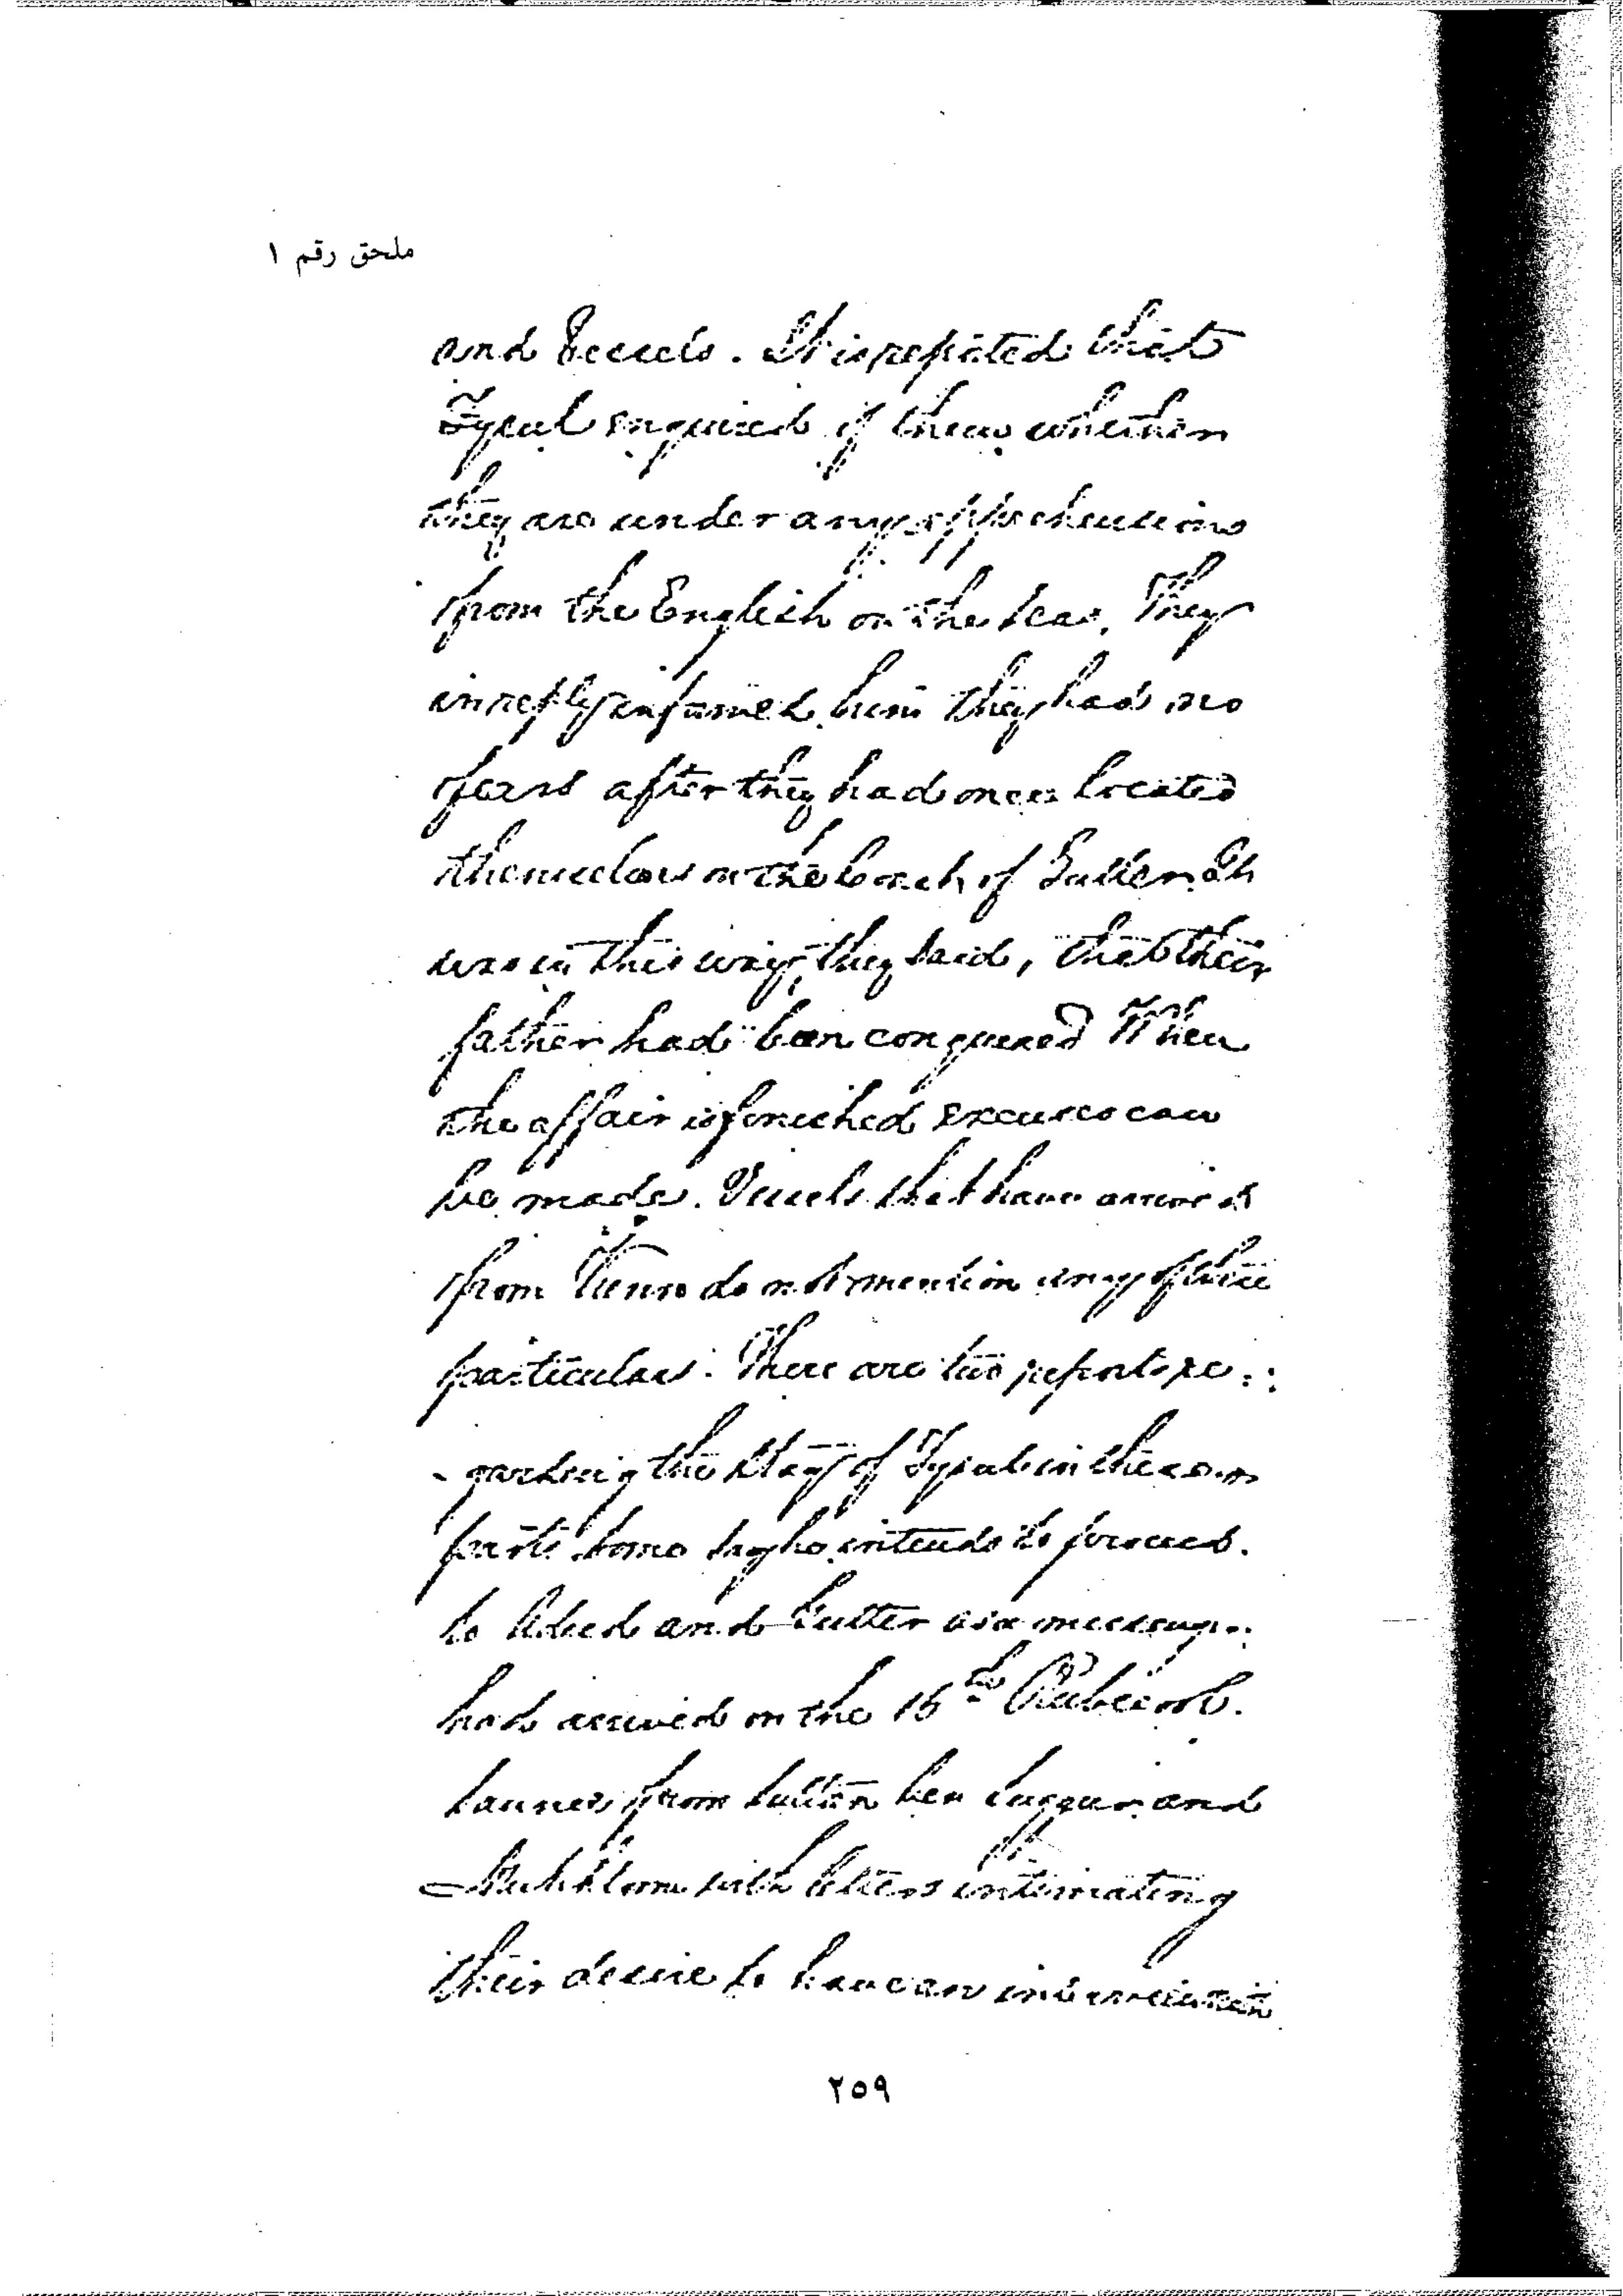 ملحق رقم ١
and Vessels. It is reported that
Fysul enquired of them whether
they are under any apprehensions
from the English on the Seas. They
in reply informed him they had no
fears after they had once located
themselves on the beach of It
was in this way, they said, that their
father had been conquered When
the affair is finished excuses can
be made. Vessels that have arrived
from do not mention any of these
particulars. There are two reports re-
-garding the stay of Fysul in these
parts some say he intends to proceed
to and as a
had arrived on the 15th
from Sultan ben and
with letters intimating
their desire to have an
٢٥٩